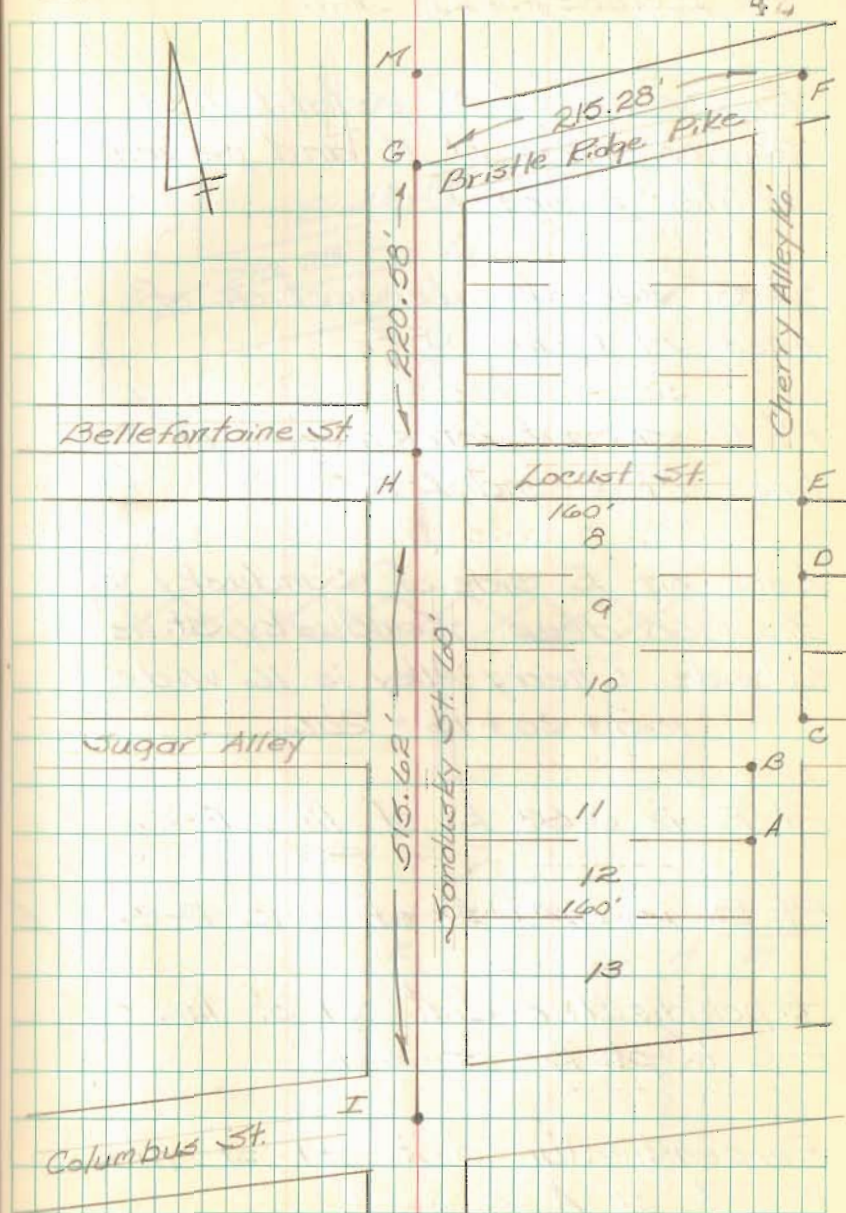 M
F
215.28'
G
Bristle Ridge Pike
220.58'
Cherry Alley 16'
Bellefontaine St.
H
Locust St.
E
160'
8
D
9
10
Sugar Alley
C
515.62'
Sandusky St. 60'
B
11
A
12
160'
13
I
Columbus St.